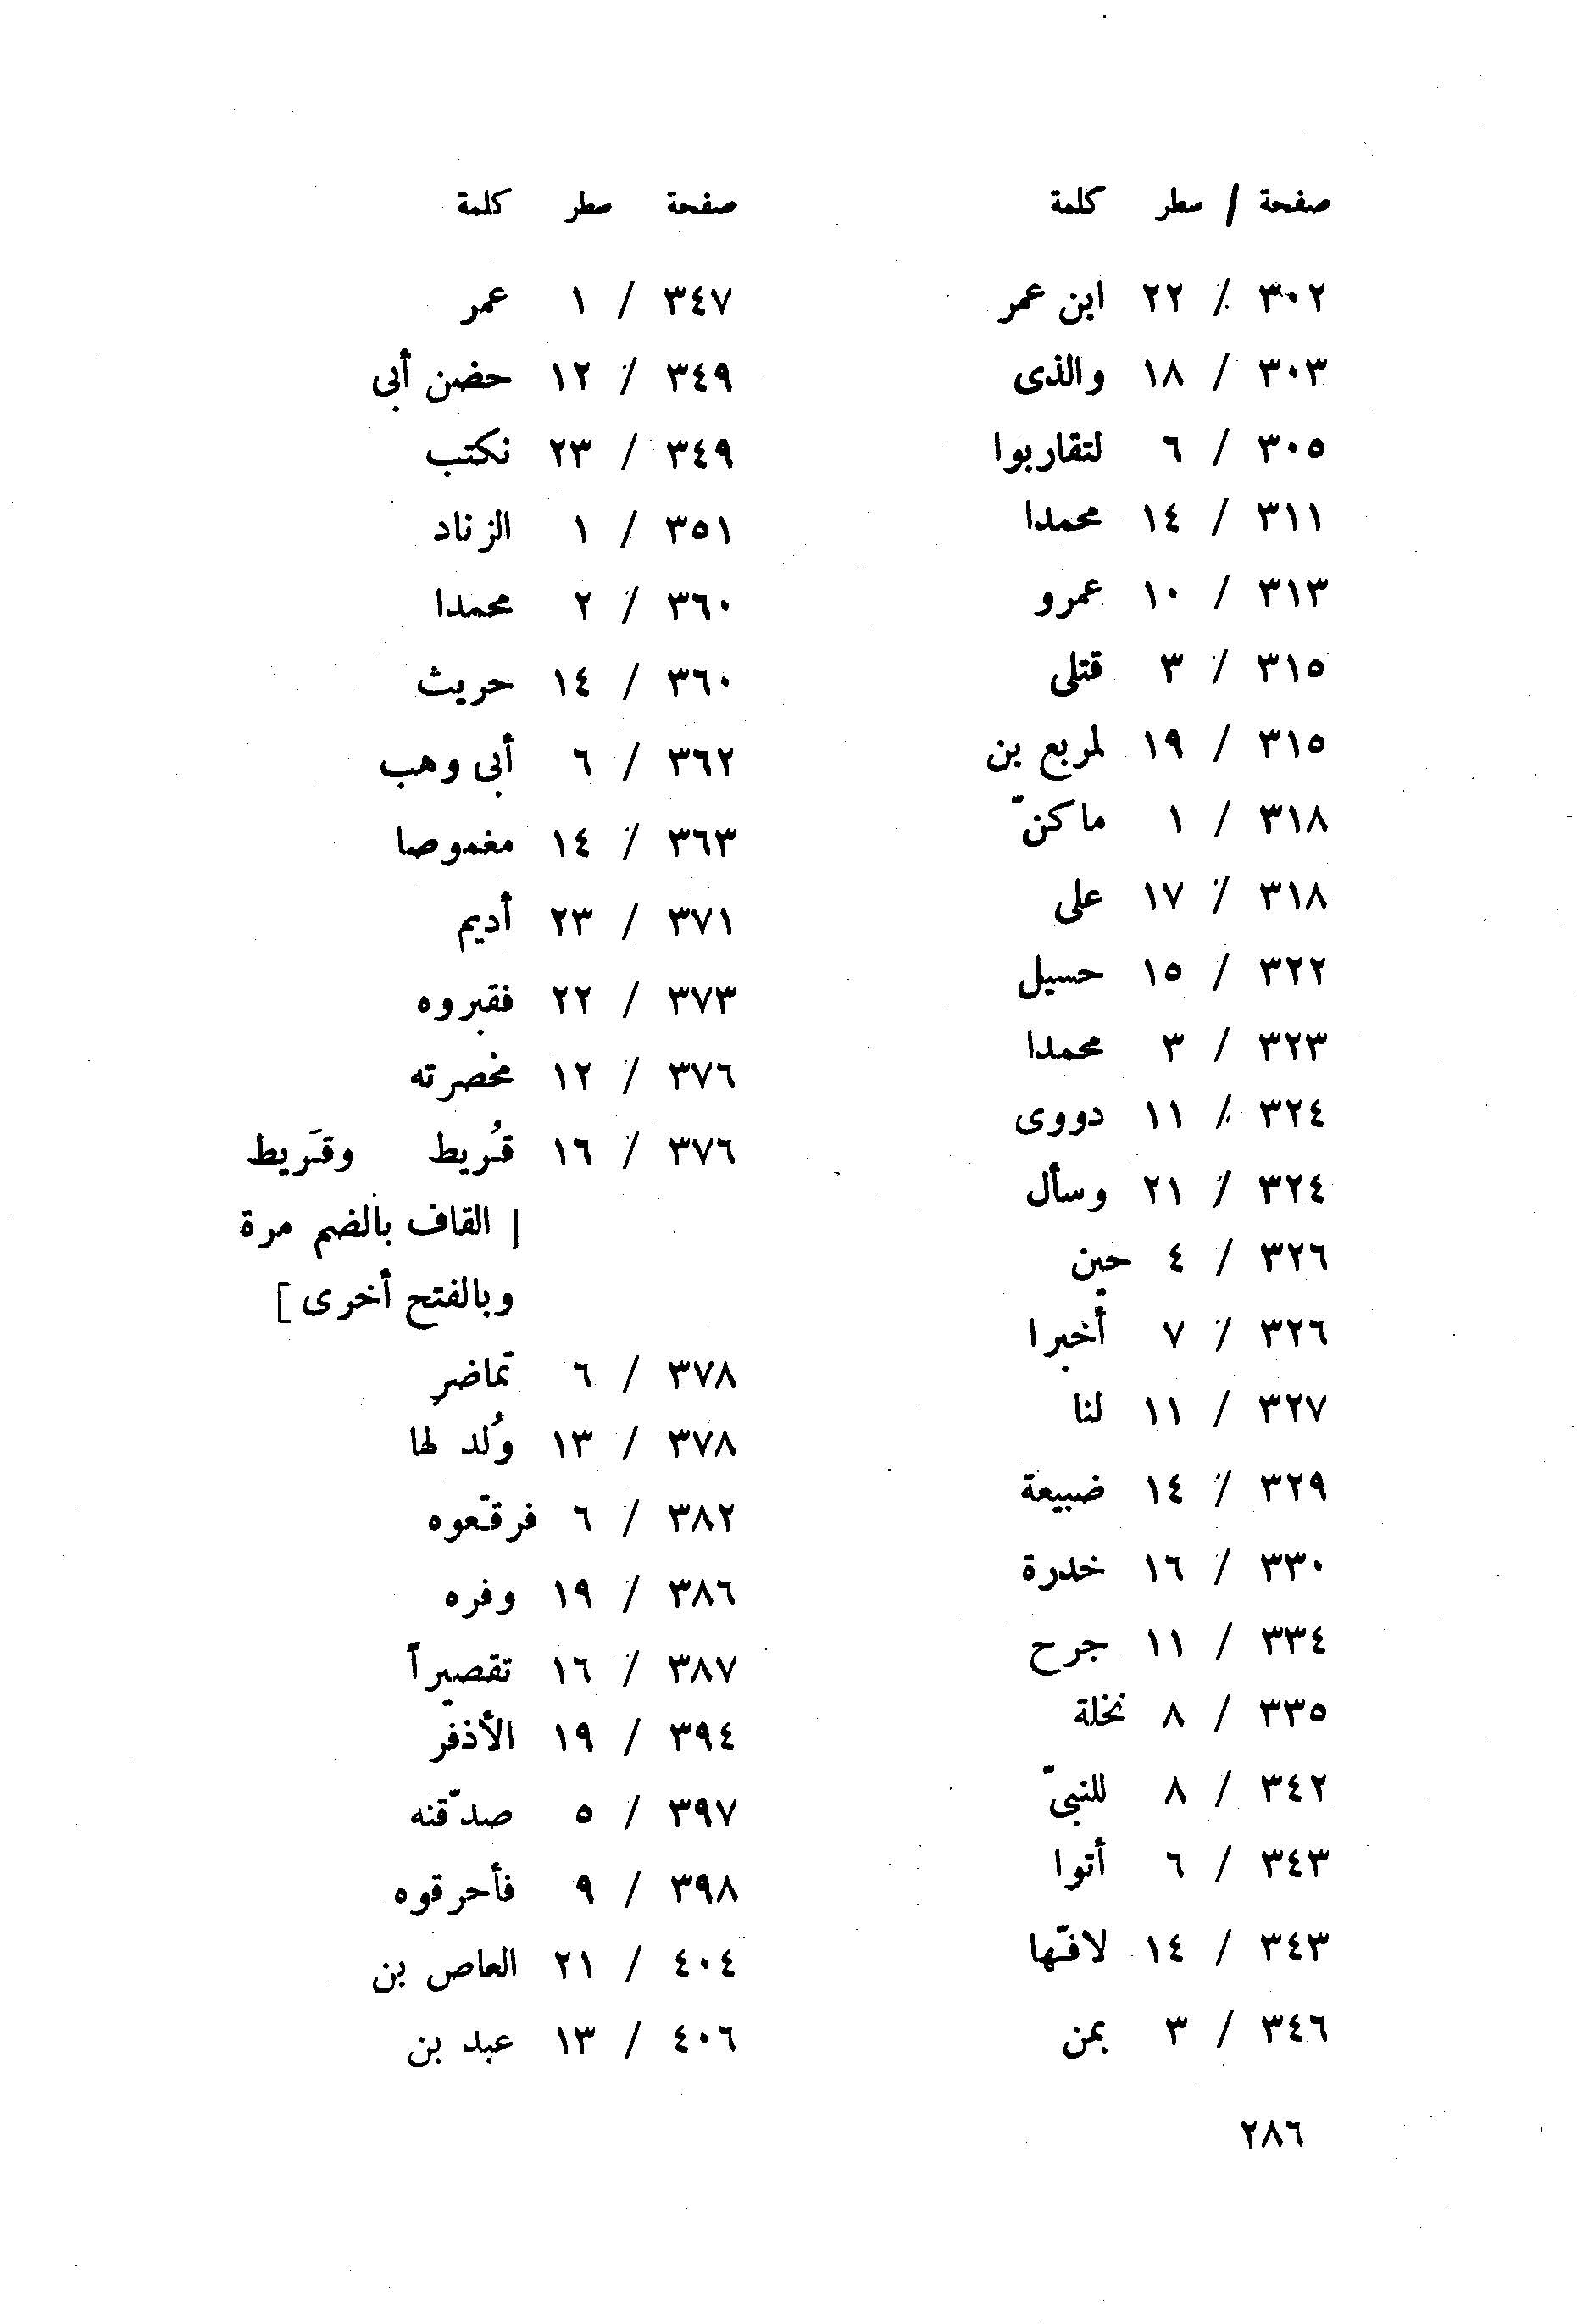 صفحة / سطر كلمة
٣٠٢ / ٢٢ ابن عمر
٣٠٣ / ١٨ والذى
٣٠٥ / ٦ لتقاربوا
٣١١ / ١٤ محمدا
٣١٣ / ١٠ عمرو
٣١٥ / ٣ قتلى
٣١٥ / ١٩ لمربع بن
٣١٨ / ١ ما كنّ
٣١٨ / ١٧ على
٣٢٢ / ١٥ حسيل
٣٢٣ / ٣ محمدا
٣٢٤ / ١١ دووى
٣٢٤ / ٢١ وسأل
٣٢٦ / ٤ حين
٣٢٦ / ٧ أخبرا
٣٢٧ / ١١ لنا
٣٢٩ / ١٤ ضبيعة
٣٣٠ / ١٦ خدرة
٣٣٤ / ١١ جرح
٣٣٥ / ٨ نخلة
٣٤٢ / ٨ للنبىّ
٣٤٣ / ٦ أتوا
٣٤٣ / ١٤ لافّها
٣٤٦ / ٣ بمن
صفحة سطر كلمة
٣٤٧ / ١ عمر
٣٤٩ / ١٢ حضن أبى
٣٤٩ / ٢٣ نكتب
٣٥١ / ١ الزناد
٣٦٠ / ٢ محمدا
٣٦٠ / ١٤ حريث
٣٦٢ / ٦ أبى وهب
٣٦٣ / ١٤ مغموصا
٣٧١ / ٢٣ أديم
٣٧٣ / ٢٢ فقبروه
٣٧٦ / ١٢ مخصرته
٣٧٦ / ١٦ قُريط وقَريط
[ القاف بالضم مرة
وبالفتح أخرى ]
٣٧٨ / ٦ تماضر
٣٧٨ / ١٣ وُلد لها
٣٨٢ / ٦ فرقّعوه
٣٨٦ / ١٩ وفره
٣٨٧ / ١٦ تقصيراً
٣٩٤ / ١٩ الأذفر
٣٩٧ / ٥ صدّقنه
٣٩٨ / ٩ فأحرقوه
٤٠٤ / ٢١ العاص بن
٤٠٦ / ١٣ عبد بن
٢٨٦